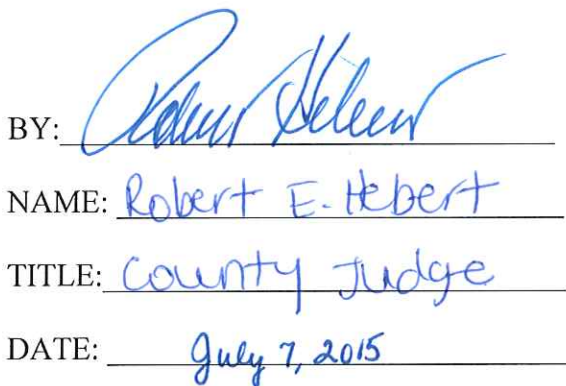 BY: Robert Hebert
NAME: Robert E. Hebert
TITLE: County Judge
DATE: July 7, 2015